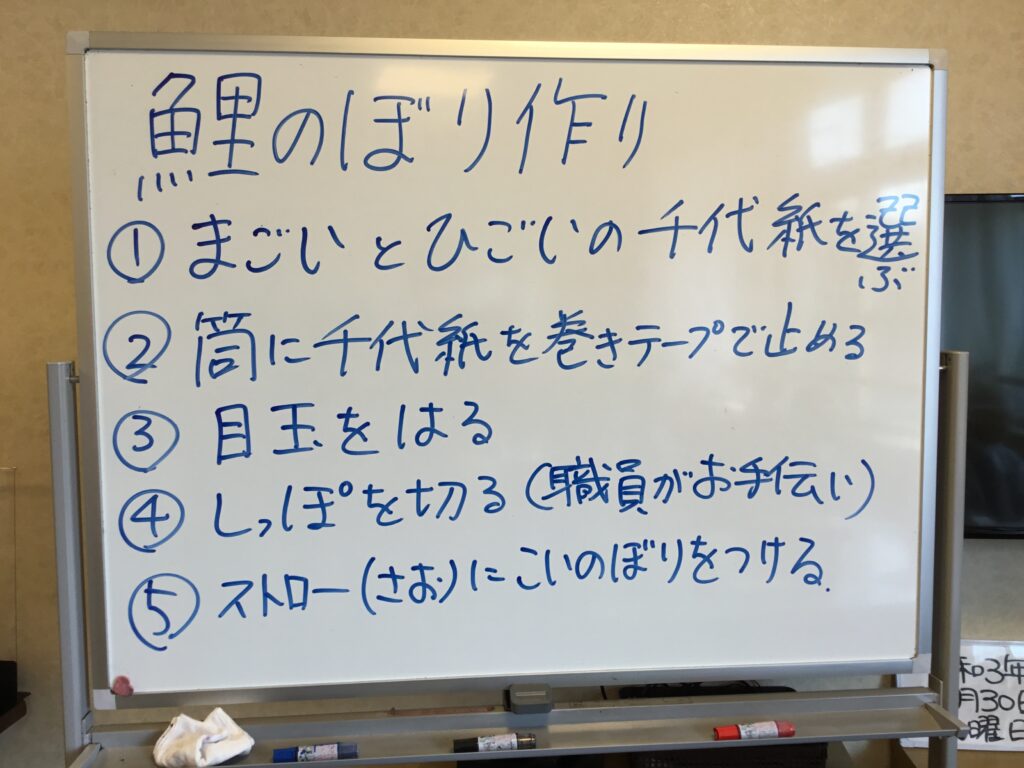 鯉のぼり作り
① まごいとひごいの千代紙を選ぶ
② 筒に千代紙を巻きテープで止める
③ 目玉をはる
④ しっぽを切る(職員がお手伝い)
⑤ ストロー(さお)にこいのぼりをつける.
和3年
月30日
曜日